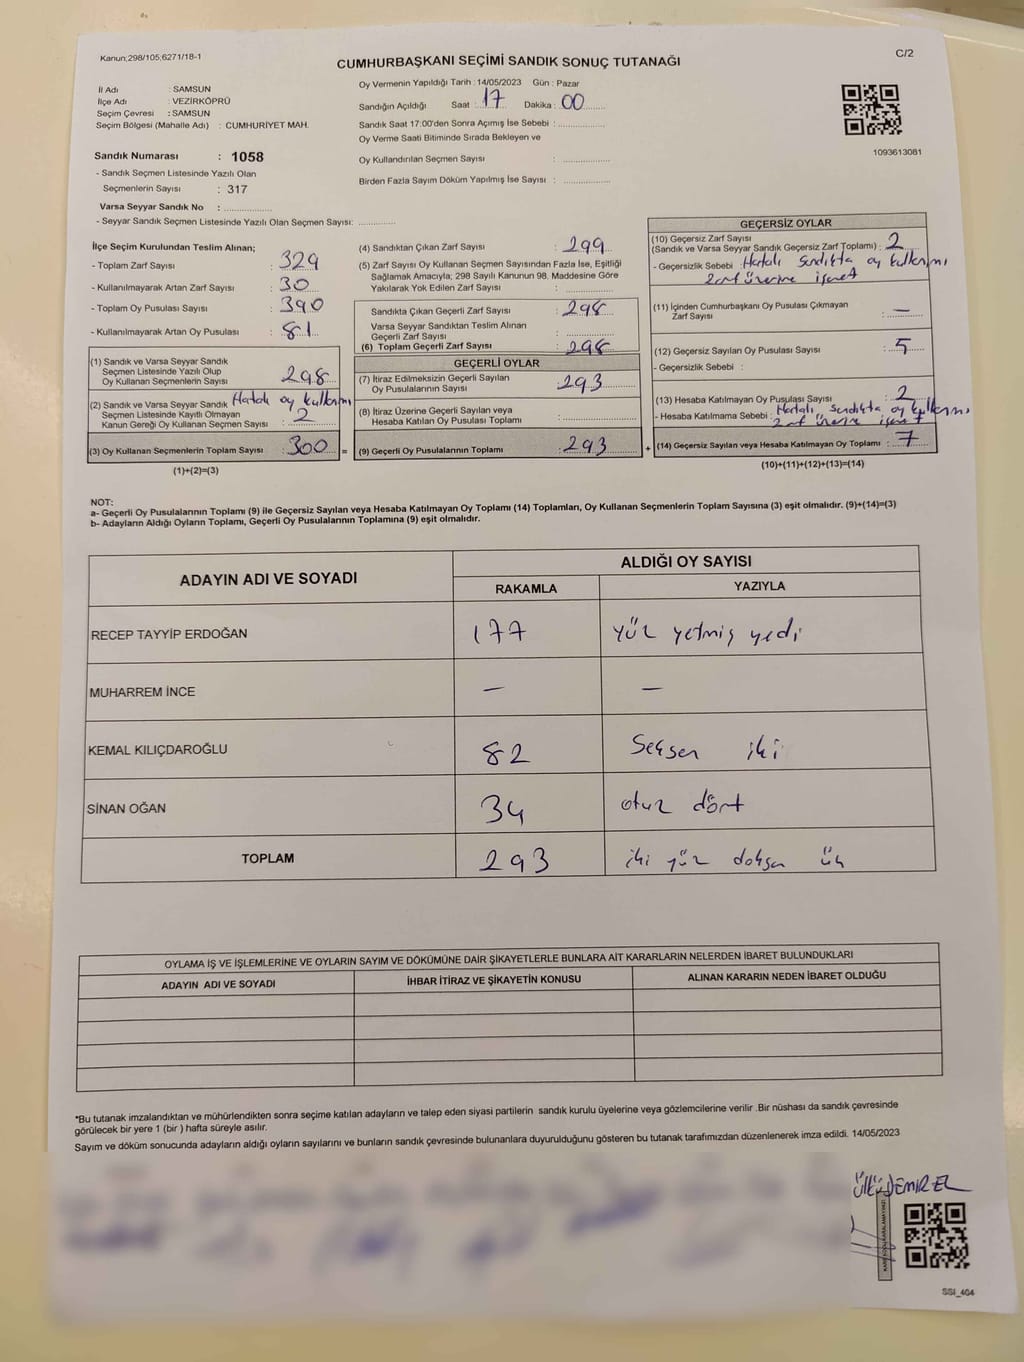 Kanun;298/105;6271/18-1
C/2
CUMHURBAŞKANI SEÇİMİ SANDIK SONUÇ TUTANAĞI
İl Adı : SAMSUN
İlçe Adı : VEZİRKÖPRÜ
Seçim Çevresi : SAMSUN
Seçim Bölgesi (Mahalle Adı) : CUMHURİYET MAH.
Sandık Numarası : 1058
- Sandık Seçmen Listesinde Yazılı Olan
Seçmenlerin Sayısı : 317
Varsa Seyyar Sandık No :
- Seyyar Sandık Seçmen Listesinde Yazılı Olan Seçmen Sayısı:
Oy Vermenin Yapıldığı Tarih : 14/05/2023 Gün : Pazar
Sandığın Açıldığı Saat : 17 Dakika : 00
Sandık Saat 17:00'den Sonra Açımış İse Sebebi :
Oy Verme Saati Bitiminde Sırada Bekleyen ve
Oy Kullandırılan Seçmen Sayısı :
Birden Fazla Sayım Döküm Yapılmış İse Sayısı :
1093613081
İlçe Seçim Kurulundan Teslim Alınan;
- Toplam Zarf Sayısı : 329
- Kullanılmayarak Artan Zarf Sayısı : 30
- Toplam Oy Pusulası Sayısı : 390
- Kullanılmayarak Artan Oy Pusulası : 81
(1) Sandık ve Varsa Seyyar Sandık
Seçmen Listesinde Yazılı Olup
Oy Kullanan Seçmenlerin Sayısı : 298
(2) Sandık ve Varsa Seyyar Sandık Hatalı oy kullanımı
Seçmen Listesinde Kayıtlı Olmayan
Kanun Gereği Oy Kullanan Seçmen Sayısı : 2
(3) Oy Kullanan Seçmenlerin Toplam Sayısı : 300 =
(1)+(2)=(3)
(4) Sandıktan Çıkan Zarf Sayısı : 299
(5) Zarf Sayısı Oy Kullanan Seçmen Sayısından Fazla İse, Eşitliği
Sağlamak Amacıyla; 298 Sayılı Kanunun 98. Maddesine Göre
Yakılarak Yok Edilen Zarf Sayısı :
Sandıkta Çıkan Geçerli Zarf Sayısı : 298
Varsa Seyyar Sandıktan Teslim Alınan
Geçerli Zarf Sayısı :
(6) Toplam Geçerli Zarf Sayısı : 298
GEÇERLİ OYLAR
(7) İtiraz Edilmeksizin Geçerli Sayılan
Oy Pusulalarının Sayısı : 293
(8) İtiraz Üzerine Geçerli Sayılan veya
Hesaba Katılan Oy Pusulası Toplamı :
(9) Geçerli Oy Pusulalarının Toplamı : 293 +
GEÇERSİZ OYLAR
(10) Geçersiz Zarf Sayısı
(Sandık ve Varsa Seyyar Sandık Geçersiz Zarf Toplamı) : 2
- Geçersizlik Sebebi : Hatalı Sandıkta oy kullanımı
zarf üzerine işaret
(11) İçinden Cumhurbaşkanı Oy Pusulası Çıkmayan
Zarf Sayısı : —
(12) Geçersiz Sayılan Oy Pusulası Sayısı : 5
- Geçersizlik Sebebi :
(13) Hesaba Katılmayan Oy Pusulası Sayısı : 2
- Hesaba Katılmama Sebebi : Hatalı sandıkta oy kullanımı
zarf üzerine işaret
(14) Geçersiz Sayılan veya Hesaba Katılmayan Oy Toplamı : 7
(10)+(11)+(12)+(13)=(14)
NOT:
a- Geçerli Oy Pusulalarının Toplamı (9) ile Geçersiz Sayılan veya Hesaba Katılmayan Oy Toplamı (14) Toplamları, Oy Kullanan Seçmenlerin Toplam Sayısına (3) eşit olmalıdır. (9)+(14)=(3)
b- Adayların Aldığı Oyların Toplamı, Geçerli Oy Pusulalarının Toplamına (9) eşit olmalıdır.
ADAYIN ADI VE SOYADI
ALDIĞI OY SAYISI
RAKAMLA YAZIYLA
RECEP TAYYİP ERDOĞAN 177 yüz yetmiş yedi
MUHARREM İNCE — —
KEMAL KILIÇDAROĞLU 82 Seksen iki
SİNAN OĞAN 34 otuz dört
TOPLAM 293 iki yüz doksan üç
OYLAMA İŞ VE İŞLEMLERİNE VE OYLARIN SAYIM VE DÖKÜMÜNE DAİR ŞİKAYETLERLE BUNLARA AİT KARARLARIN NELERDEN İBARET BULUNDUKLARI
ADAYIN ADI VE SOYADI İHBAR İTİRAZ VE ŞİKAYETİN KONUSU ALINAN KARARIN NEDEN İBARET OLDUĞU
*Bu tutanak imzalandıktan ve mühürlendikten sonra seçime katılan adayların ve talep eden siyasi partilerin sandık kurulu üyelerine veya gözlemcilerine verilir .Bir nüshası da sandık çevresinde
görülecek bir yere 1 (bir ) hafta süreyle asılır.
Sayım ve döküm sonucunda adayların aldığı oyların sayılarını ve bunların sandık çevresinde bulunanlara duyurulduğunu gösteren bu tutanak tarafımızdan düzenlenerek imza edildi. 14/05/2023
ÜLKÜ DEMİREL
SSI_4G4